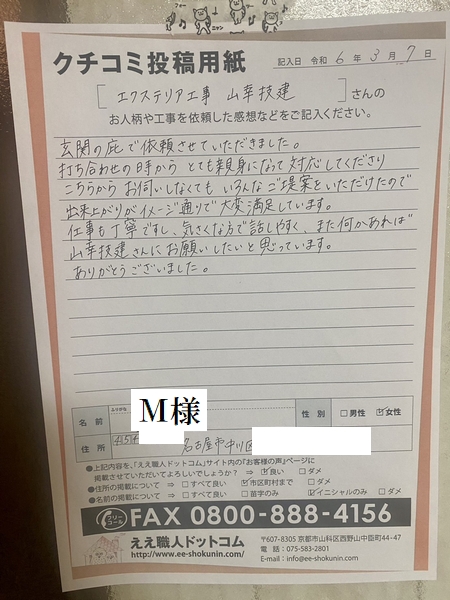 クチコミ投稿用紙
記入日 令和 6 年 3 月 7 日
[ エクステリア工事 山幸技建 ] さんの
お人柄や工事を依頼した感想などをご記入ください。
玄関の庇で依頼させていただきました。
打ち合わせの時から とても親身になって対応してくださり
こちらから お伺いしなくても いろんなご提案をいただけたので
出来上がりがイメージ通りで大変満足しています。
仕事も丁寧ですし、気さくな方で話しやすく、また何かあれば
山幸技建さんにお願いしたいと思っています。
ありがとうございました。
ふりがな
名前 M様 性別 □男性 ☑女性
住所 名古屋市中川区
●上記内容を、「ええ職人ドットコム」サイト内の『お客様の声』ページに
掲載させていただいてよろしいでしょうか？ ⇒ ☑良い □ダメ
●住所の掲載について ⇒ □すべて良い ☑市区町村まで □ダメ
●名前の掲載について ⇒ □すべて良い □苗字のみ ☑イニシャルのみ □ダメ
フリーコール FAX 0800-888-4156
ええ職人ドットコム
http://www.ee-shokunin.com/
〒607-8305 京都市山科区西野山中臣町44-47
電話：075-583-2801
E-mail：info@ee-shokunin.com